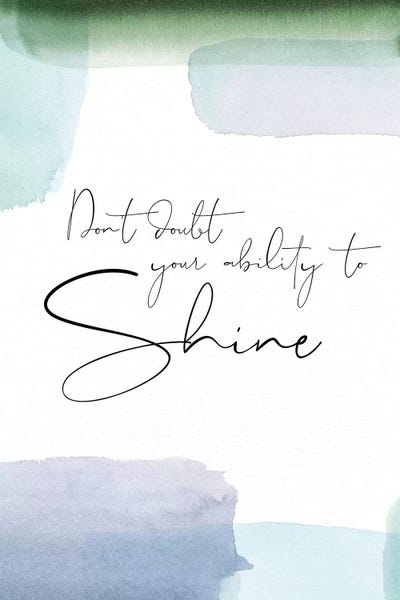 Dont doubt
your ability to
Shine